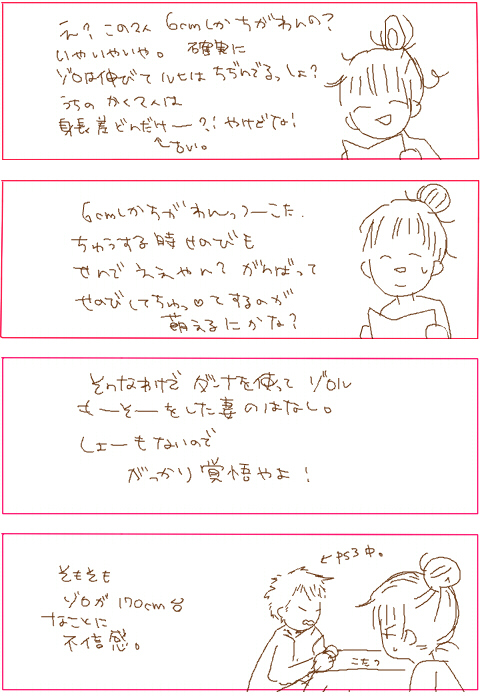 え？この2人 6cmしかちがわんの？
いやいやいや。確実に
ゾロは伸びて ルヒは ちぢんでるっしょ？
うちの かく2人は
身長差どんだけー？！やけどな！
↑古い。
6cmしかちがわんっつーこた
ちゅうする時 せのびも
せんで ええやん？ がんばって
せのびしてちゅっ♡てするのが
萌えるにかな？
そんなわけで ダンナを使って ゾロル
もーそーをした妻のはなし。
しょーもないので
がっかり覚悟やよ！
←PS3中。
そもそも
ゾロが170cm台
なことに
不信感。
こたつ